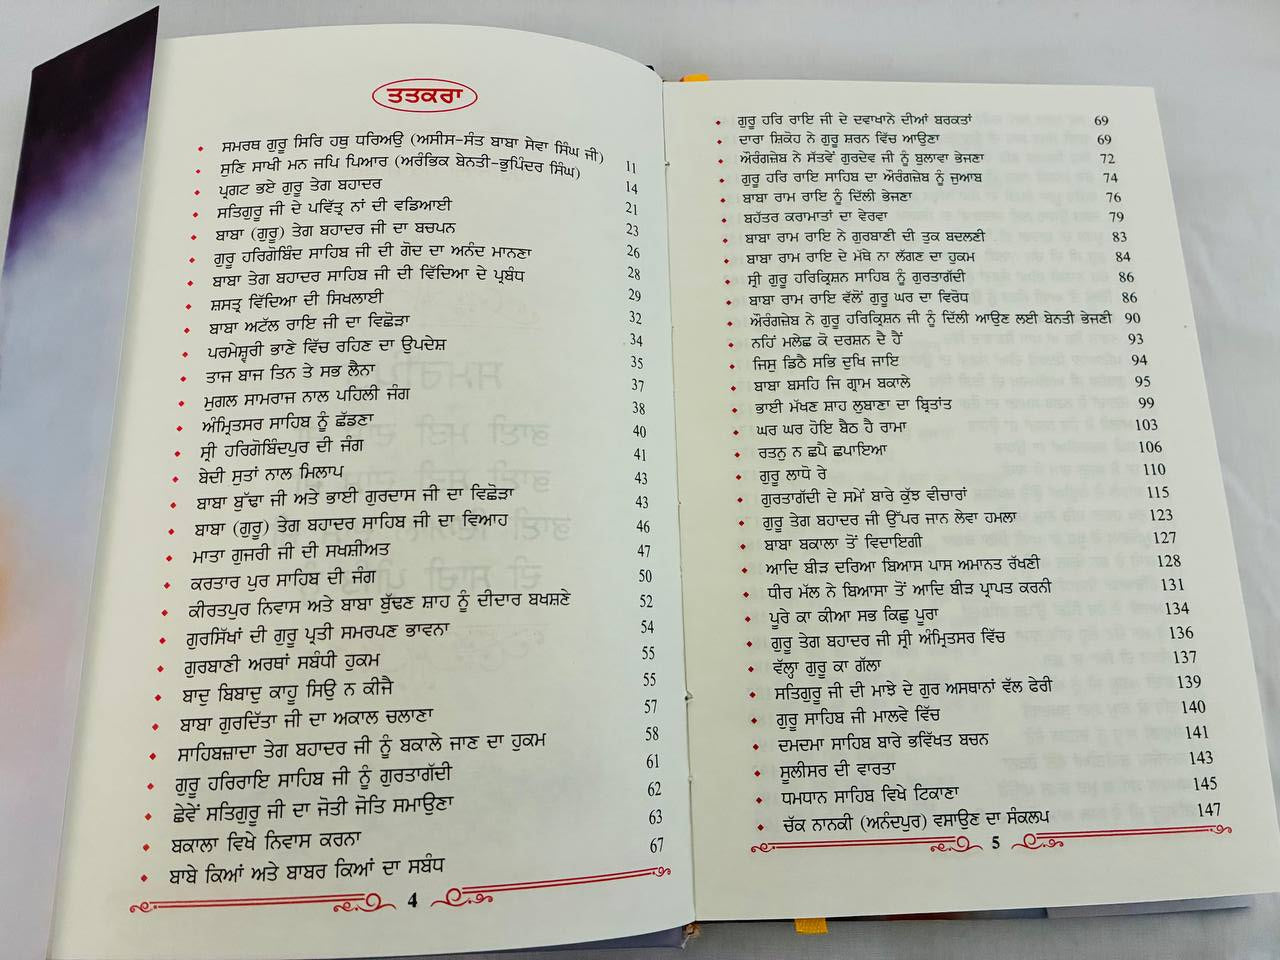 ਤਤਕਰਾ
ਸਮਰਥ ਗੁਰੂ ਸਿਰਿ ਹਥੁ ਧਰਿਅਉ (ਅਸੀਸ-ਸੰਤ ਬਾਬਾ ਸੇਵਾ ਸਿੰਘ ਜੀ) 11
ਸੁਣਿ ਸਾਖੀ ਮਨ ਜਪਿ ਪਿਆਰ (ਅਰੰਭਿਕ ਬੇਨਤੀ-ਭੁਪਿੰਦਰ ਸਿੰਘ) 14
ਪ੍ਰਗਟ ਭਏ ਗੁਰੂ ਤੇਗ ਬਹਾਦਰ 21
ਸਤਿਗੁਰੂ ਜੀ ਦੇ ਪਵਿੱਤ੍ਰ ਨਾਂ ਦੀ ਵਡਿਆਈ 23
ਬਾਬਾ (ਗੁਰੂ) ਤੇਗ ਬਹਾਦਰ ਜੀ ਦਾ ਬਚਪਨ 26
ਗੁਰੂ ਹਰਿਗੋਬਿੰਦ ਸਾਹਿਬ ਜੀ ਦੀ ਗੋਦ ਦਾ ਅਨੰਦ ਮਾਨਣਾ 28
ਬਾਬਾ ਤੇਗ ਬਹਾਦਰ ਸਾਹਿਬ ਜੀ ਦੀ ਵਿੱਦਿਆ ਦੇ ਪ੍ਰਬੰਧ 29
ਸ਼ਸਤ੍ਰ ਵਿੱਦਿਆ ਦੀ ਸਿਖਲਾਈ 32
ਬਾਬਾ ਅਟੱਲ ਰਾਇ ਜੀ ਦਾ ਵਿਛੋੜਾ 34
ਪਰਮੇਸ਼੍ਵਰੀ ਭਾਣੇ ਵਿੱਚ ਰਹਿਣ ਦਾ ਉਪਦੇਸ਼ 35
ਤਾਜ ਬਾਜ ਤਿਨ ਤੇ ਸਭ ਲੈਨਾ 37
ਮੁਗਲ ਸਾਮਰਾਜ ਨਾਲ ਪਹਿਲੀ ਜੰਗ 38
ਅੰਮ੍ਰਿਤਸਰ ਸਾਹਿਬ ਨੂੰ ਛੱਡਣਾ 40
ਸ੍ਰੀ ਹਰਿਗੋਬਿੰਦਪੁਰ ਦੀ ਜੰਗ 41
ਬੇਦੀ ਸੁਤਾਂ ਨਾਲ ਮਿਲਾਪ 43
ਬਾਬਾ ਬੁੱਢਾ ਜੀ ਅਤੇ ਭਾਈ ਗੁਰਦਾਸ ਜੀ ਦਾ ਵਿਛੋੜਾ 43
ਬਾਬਾ (ਗੁਰੂ) ਤੇਗ ਬਹਾਦਰ ਸਾਹਿਬ ਜੀ ਦਾ ਵਿਆਹ 46
ਮਾਤਾ ਗੁਜਰੀ ਜੀ ਦੀ ਸਖਸ਼ੀਅਤ 47
ਕਰਤਾਰ ਪੁਰ ਸਾਹਿਬ ਦੀ ਜੰਗ 50
ਕੀਰਤਪੁਰ ਨਿਵਾਸ ਅਤੇ ਬਾਬਾ ਬੁੱਢਣ ਸ਼ਾਹ ਨੂੰ ਦੀਦਾਰ ਬਖਸ਼ਣੇ 52
ਗੁਰਸਿੱਖਾਂ ਦੀ ਗੁਰੂ ਪ੍ਰਤੀ ਸਮਰਪਣ ਭਾਵਨਾ 54
ਗੁਰਬਾਣੀ ਅਰਥਾਂ ਸਬੰਧੀ ਹੁਕਮ 55
ਬਾਦੁ ਬਿਬਾਦੁ ਕਾਹੂ ਸਿਉ ਨ ਕੀਜੈ 55
ਬਾਬਾ ਗੁਰਦਿੱਤਾ ਜੀ ਦਾ ਅਕਾਲ ਚਲਾਣਾ 57
ਸਾਹਿਬਜ਼ਾਦਾ ਤੇਗ ਬਹਾਦਰ ਜੀ ਨੂੰ ਬਕਾਲੇ ਜਾਣ ਦਾ ਹੁਕਮ 58
ਗੁਰੂ ਹਰਿਰਾਇ ਸਾਹਿਬ ਜੀ ਨੂੰ ਗੁਰਤਾਗੱਦੀ 61
ਛੇਵੇਂ ਸਤਿਗੁਰੂ ਜੀ ਦਾ ਜੋਤੀ ਜੋਤਿ ਸਮਾਉਣਾ 62
ਬਕਾਲਾ ਵਿਖੇ ਨਿਵਾਸ ਕਰਨਾ 63
ਬਾਬੇ ਕਿਆਂ ਅਤੇ ਬਾਬਰ ਕਿਆਂ ਦਾ ਸਬੰਧ 67
4
ਗੁਰੂ ਹਰਿ ਰਾਇ ਜੀ ਦੇ ਦਵਾਖਾਨੇ ਦੀਆਂ ਬਰਕਤਾਂ 69
ਦਾਰਾ ਸ਼ਿਕੋਹ ਨੇ ਗੁਰੂ ਸ਼ਰਨ ਵਿੱਚ ਆਉਣਾ 69
ਔਰੰਗਜ਼ੇਬ ਨੇ ਸੱਤਵੇਂ ਗੁਰਦੇਵ ਜੀ ਨੂੰ ਬੁਲਾਵਾ ਭੇਜਣਾ 72
ਗੁਰੂ ਹਰਿ ਰਾਇ ਸਾਹਿਬ ਦਾ ਔਰੰਗਜ਼ੇਬ ਨੂੰ ਜੁਆਬ 74
ਬਾਬਾ ਰਾਮ ਰਾਇ ਨੂੰ ਦਿੱਲੀ ਭੇਜਣਾ 76
ਬਹੱਤਰ ਕਰਾਮਾਤਾਂ ਦਾ ਵੇਰਵਾ 79
ਬਾਬਾ ਰਾਮ ਰਾਇ ਨੇ ਗੁਰਬਾਣੀ ਦੀ ਤੁਕ ਬਦਲਣੀ 83
ਬਾਬਾ ਰਾਮ ਰਾਇ ਦੇ ਮੱਥੇ ਨਾ ਲੱਗਣ ਦਾ ਹੁਕਮ 84
ਸ੍ਰੀ ਗੁਰੂ ਹਰਿਕ੍ਰਿਸ਼ਨ ਸਾਹਿਬ ਨੂੰ ਗੁਰਤਾਗੱਦੀ 86
ਬਾਬਾ ਰਾਮ ਰਾਇ ਵੱਲੋਂ ਗੁਰੂ ਘਰ ਦਾ ਵਿਰੋਧ 86
ਔਰੰਗਜ਼ੇਬ ਨੇ ਗੁਰੂ ਹਰਿਕ੍ਰਿਸ਼ਨ ਜੀ ਨੂੰ ਦਿੱਲੀ ਆਉਣ ਲਈ ਬੇਨਤੀ ਭੇਜਣੀ 90
ਨਹਿਂ ਮਲੇਛ ਕੋ ਦਰਸ਼ਨ ਦੈ ਹੈਂ 93
ਜਿਸੁ ਡਿਠੈ ਸਭਿ ਦੁਖਿ ਜਾਇ 94
ਬਾਬਾ ਬਸਹਿ ਜਿ ਗ੍ਰਾਮ ਬਕਾਲੇ 95
ਭਾਈ ਮੱਖਣ ਸ਼ਾਹ ਲੁਬਾਣਾ ਦਾ ਬ੍ਰਿਤਾਂਤ 99
ਘਰ ਘਰ ਹੋਇ ਬੈਠ ਹੈ ਰਾਮਾ 103
ਰਤਨੁ ਨ ਛਪੈ ਛਪਾਇਆ 106
ਗੁਰੂ ਲਾਧੋ ਰੇ 110
ਗੁਰਤਾਗੱਦੀ ਦੇ ਸਮੇਂ ਬਾਰੇ ਕੁੱਝ ਵੀਚਾਰਾਂ 115
ਗੁਰੂ ਤੇਗ ਬਹਾਦਰ ਜੀ ਉੱਪਰ ਜਾਨ ਲੇਵਾ ਹਮਲਾ 123
ਬਾਬਾ ਬਕਾਲਾ ਤੋਂ ਵਿਦਾਇਗੀ 127
ਆਦਿ ਬੀੜ ਦਰਿਆ ਬਿਆਸ ਪਾਸ ਅਮਾਨਤ ਰੱਖਣੀ 128
ਧੀਰ ਮੱਲ ਨੇ ਬਿਆਸਾ ਤੋਂ ਆਦਿ ਬੀੜ ਪ੍ਰਾਪਤ ਕਰਨੀ 131
ਪੂਰੇ ਕਾ ਕੀਆ ਸਭ ਕਿਛੁ ਪੂਰਾ 134
ਗੁਰੂ ਤੇਗ ਬਹਾਦਰ ਜੀ ਸ੍ਰੀ ਅੰਮ੍ਰਿਤਸਰ ਵਿੱਚ 136
ਵੱਲ੍ਹਾ ਗੁਰੂ ਕਾ ਗੱਲਾ 137
ਸਤਿਗੁਰੂ ਜੀ ਦੀ ਮਾਝੇ ਦੇ ਗੁਰ ਅਸਥਾਨਾਂ ਵੱਲ ਫੇਰੀ 139
ਗੁਰੂ ਸਾਹਿਬ ਜੀ ਮਾਲਵੇ ਵਿੱਚ 140
ਦਮਦਮਾ ਸਾਹਿਬ ਬਾਰੇ ਭਵਿੱਖਤ ਬਚਨ 141
ਸੂਲੀਸਰ ਦੀ ਵਾਰਤਾ 143
ਧਮਧਾਨ ਸਾਹਿਬ ਵਿਖੇ ਟਿਕਾਣਾ 145
ਚੱਕ ਨਾਨਕੀ (ਅਨੰਦਪੁਰ) ਵਸਾਉਣ ਦਾ ਸੰਕਲਪ 147
5